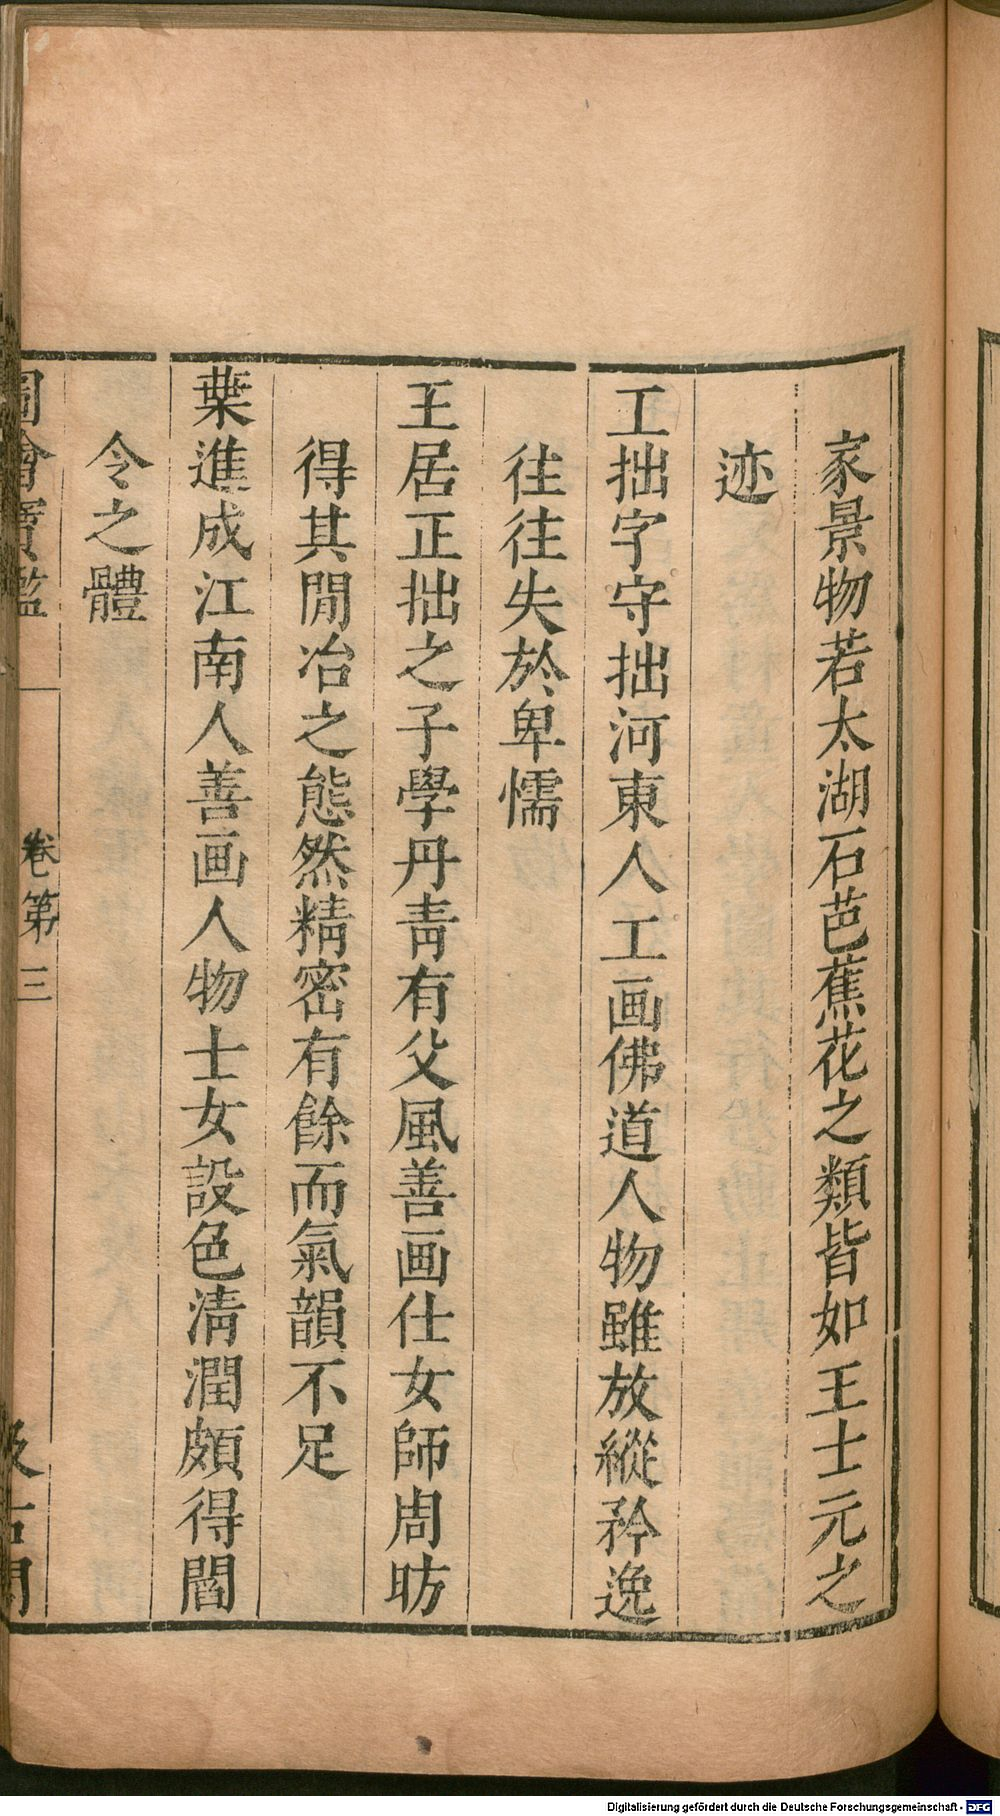 家景物若太湖石芭蕉花之類皆如王士元之
迹
工拙字守拙河東人工画佛道人物雖放縱矜逸
往往失於卑懦
王居正拙之子學丹青有父風善画仕女師周昉
得其閒冶之態然精密有餘而氣韻不足
葉進成江南人善画人物士女設色清潤頗得閻
令之體
圖繪寶鑑
卷第三
汲古閣
Digitalisierung gefördert durch die Deutsche Forschungsgemeinschaft - DFG